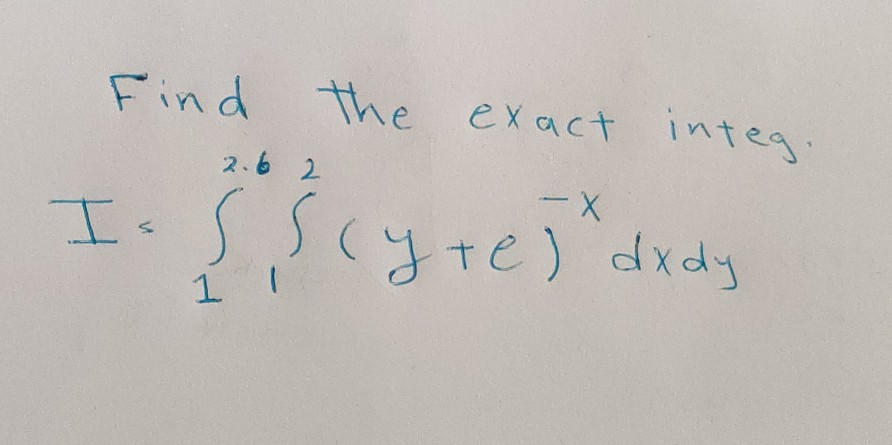 Find the exact integ.
I = ∫₁^2.6 ∫₁^2 (y+e)^-x dxdy